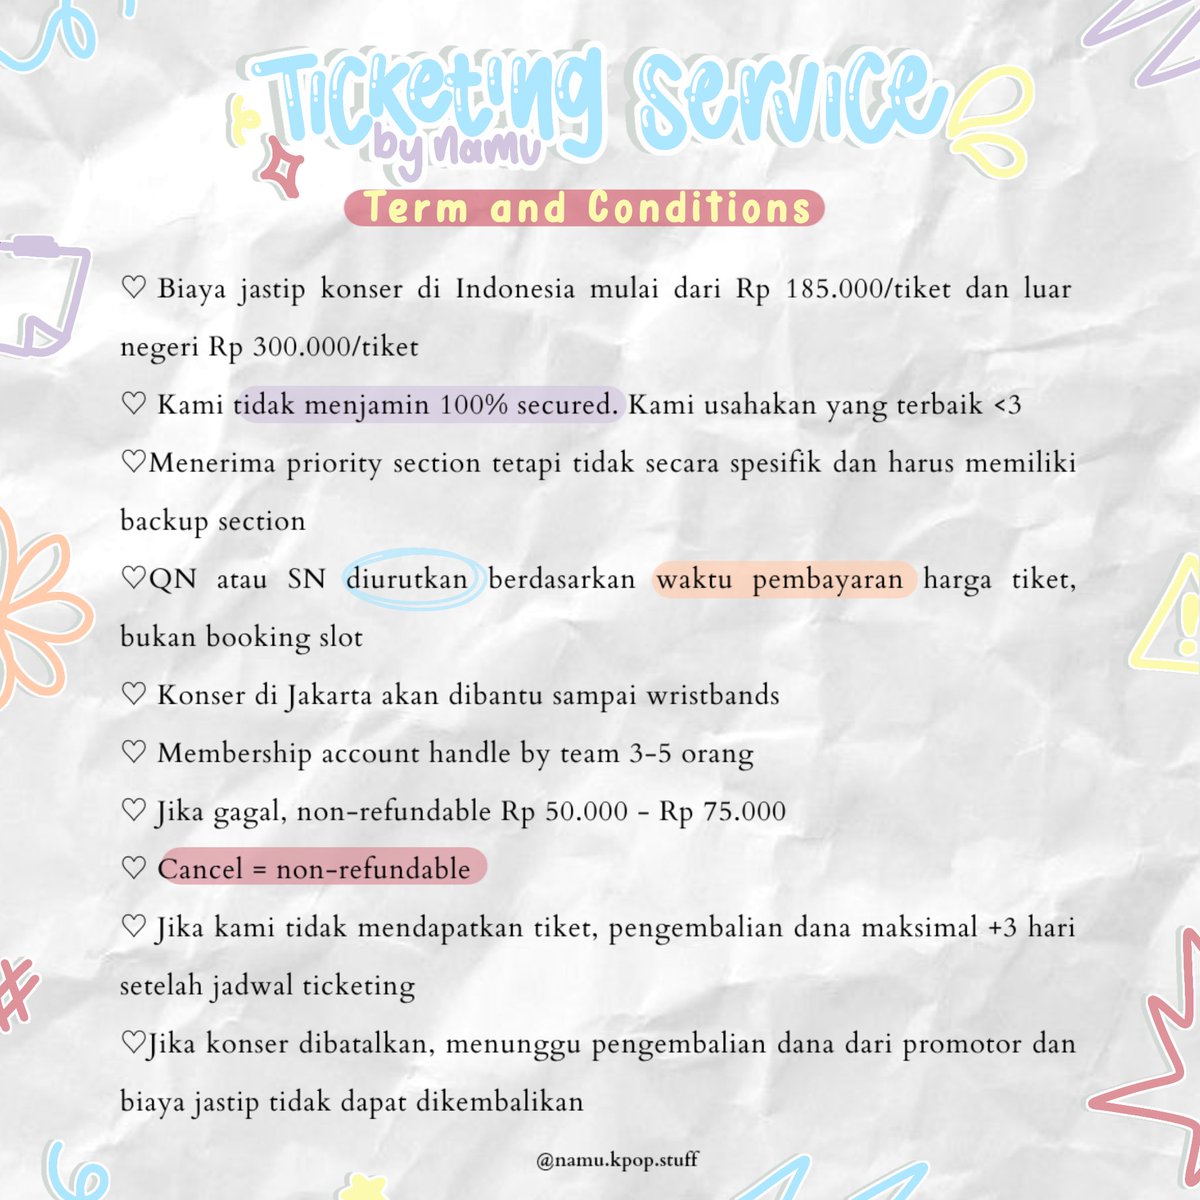 Ticketing Service
by namu
Term and Conditions
♡ Biaya jastip konser di Indonesia mulai dari Rp 185.000/tiket dan luar
negeri Rp 300.000/tiket
♡ Kami tidak menjamin 100% secured. Kami usahakan yang terbaik <3
♡Menerima priority section tetapi tidak secara spesifik dan harus memiliki
backup section
♡QN atau SN diurutkan berdasarkan waktu pembayaran harga tiket,
bukan booking slot
♡ Konser di Jakarta akan dibantu sampai wristbands
♡ Membership account handle by team 3-5 orang
♡ Jika gagal, non-refundable Rp 50.000 - Rp 75.000
♡ Cancel = non-refundable
♡ Jika kami tidak mendapatkan tiket, pengembalian dana maksimal +3 hari
setelah jadwal ticketing
♡Jika konser dibatalkan, menunggu pengembalian dana dari promotor dan
biaya jastip tidak dapat dikembalikan
@namu.kpop.stuff